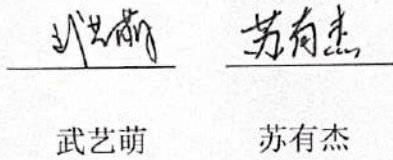 武艺萌 苏有杰
武艺萌 苏有杰